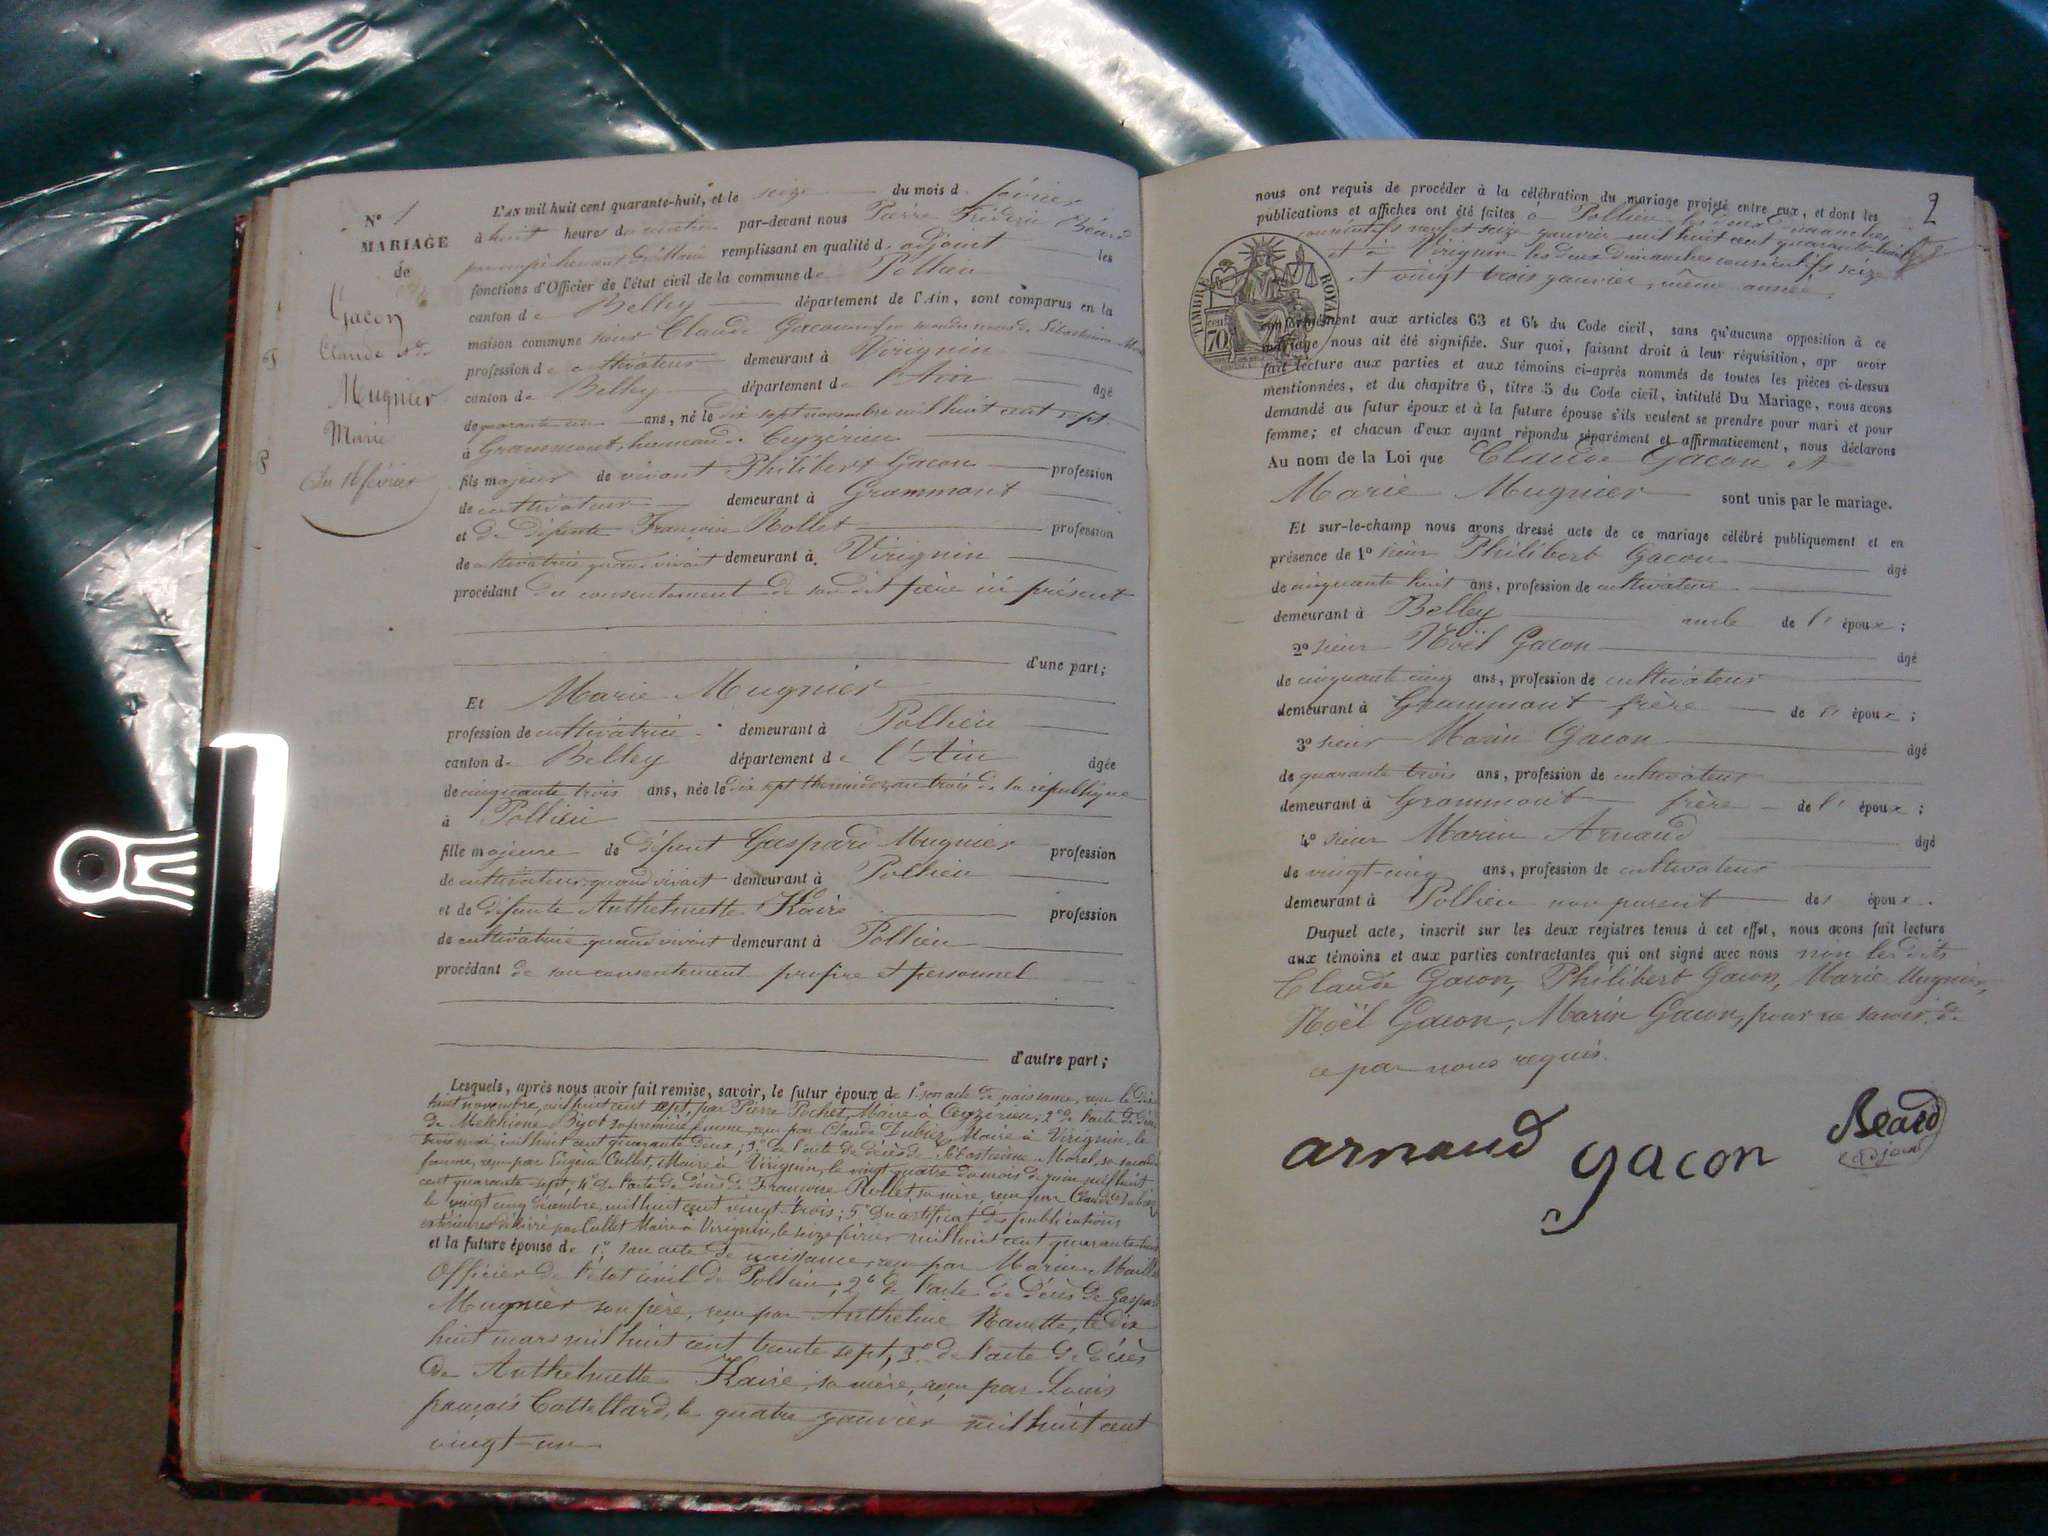 N° 1
MARIAGE
de
Gacon
Claude
Mugnier
Marie
Du 16 février
L'AN mil huit cent quarante-huit, et le seize du mois d février
à huit heures du matin par-devant nous Pierre Fréderic Béard
par empêchement du Maire remplissant en qualité d adjoint les
fonctions d'Officier de l'état civil de la commune de Pollieu
canton de Belley département de l'Ain, sont comparus en la
maison commune sieur Claude Gacon veuf en secondes noces de Sébastienne Morel
profession de cultivateur demeurant à Virignin
canton de Belley département de l'Ain âgé
de quarante un ans, né le dix sept novembre mil huit cent sept
à Grammont, hameau de Ceyzérieu
fils majeur de vivant Philibert Gacon profession
de cultivateur demeurant à Grammont
et de défunte Françoise Rollet profession
de cultivatrice quand vivait demeurant à Virignin
procédant du consentement de son dit père ici présent
d'une part;
Et Marie Mugnier
profession de cultivatrice demeurant à Pollieu
canton de Belley département de l'Ain âgée
de cinquante trois ans, née le dix sept thermidor an trois de la république
à Pollieu
fille majeure de défunt Gaspard Mugnier profession
de cultivateur quand vivait demeurant à Pollieu
et de défunte Anthelmette Kaire profession
de cultivatrice quand vivait demeurant à Pollieu
procédant de son consentement propre et personnel
d'autre part;
Lesquels, après nous avoir fait remise, savoir, le futur époux de 1° son acte de naissance, reçu le dix
huit novembre, mil huit cent sept, par Pierre Pochet, Maire à Ceyzérieu; 2° de l'acte de décès
de Melchione Bigot sa première femme, reçu par Claude Dubiez Maire à Virignin, le
trois mai, mil huit cent quarante deux; 3° de l'acte de décès de Sébastienne Morel, sa seconde
femme, reçu par Eugène Cullet, Maire à Virignin, le vingt quatre du mois de juin mil huit
cent quarante sept, 4° de l'acte de décès de Françoise Rollet, sa mère, reçu par Claude Dubiez
le vingt cinq décembre, mil huit cent vingt trois; 5° Du certificat des publications
extérieures délivré par Cullet Maire à Virignin, le seize février mil huit cent quarante huit
et la future épouse de 1°, son acte de naissance, reçu par Marin Maillet
Officier de l'état civil de Pollieu; 2° de l'acte de décès de Gaspard
Mugnier son père, reçu par Anthelme Navette, le dix
huit mars mil huit cent trente sept, 3° de l'acte de décès
de Anthelmette Kaire, sa mère, reçu par Louis
françois Cottellard, le quatre janvier mil huit cent
vingt-un
2
nous ont requis de procéder à la célébration du mariage projeté entre eux, et dont les
publications et affiches ont été faites à Pollieu les deux dimanches
consécutifs neuf et seize janvier mil huit cent quarante-huit
et à Virignin les deux dimanches consécutifs seize
et vingt trois janvier, même année,
TIMBRE ROYAL
70 cent
conformément aux articles 63 et 64 du Code civil, sans qu'aucune opposition à ce
mariage nous ait été signifiée. Sur quoi, faisant droit à leur réquisition, apr avoir
fait lecture aux parties et aux témoins ci-après nommés de toutes les pièces ci-dessus
mentionnées, et du chapitre 6, titre 5 du Code civil, intitulé Du Mariage, nous avons
demandé au futur époux et à la future épouse s'ils veulent se prendre pour mari et pour
femme; et chacun d'eux ayant répondu séparément et affirmativement, nous déclarons
Au nom de la Loi que Claude Gacon et
Marie Mugnier sont unis par le mariage.
Et sur-le-champ nous avons dressé acte de ce mariage célébré publiquement et en
présence de 1° sieur Philibert Gacon âgé
de cinquante huit ans, profession de cultivateur
demeurant à Belley oncle de l' époux;
2° sieur Noël Gacon âgé
de cinquante cinq ans, profession de cultivateur
demeurant à Grammont frère de l' époux;
3° sieur Marin Gacon âgé
de quarante trois ans, profession de cultivateur
demeurant à Grammont frère de l' époux;
4° sieur Marin Arnaud âgé
de vingt-cinq ans, profession de cultivateur
demeurant à Pollieu non parent des époux.
Duquel acte, inscrit sur les deux registres tenus à cet effet, nous avons fait lecture
aux témoins et aux parties contractantes qui ont signé avec nous non les dits
Claude Gacon, Philibert Gacon, Marie Mugnier,
Noël Gacon, Marin Gacon, pour ne savoir, de
ce par nous requis.
arnaud gacon Béard
adjoint